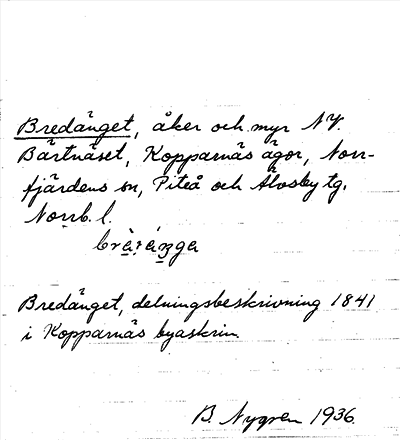 Bredänget, åker och myr NV.
Bärtnäset, Kopparnäs ägor, Norr-
fjärdens sn, Piteå och Älvsby tg.
Norrb. l.
Bredänget, delningsbeskrivning 1841
i Kopparnäs byaskrin
B. Nygren 1936.